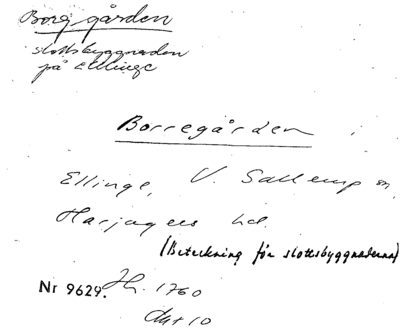 Borggården
slottsbyggnaden
på Ellinge
Borregården
Ellinge, V. Sallerup sn,
Harjagers hd.
(Beteckning för slottsbyggnaderna)
Nr 9629. Jh. 1760
Akt 10